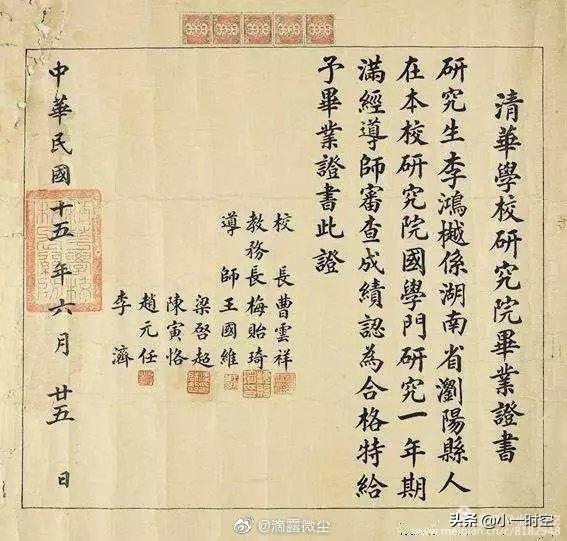 清華學校研究院畢業證書
研究生李鴻樾係湖南省瀏陽縣人
在本校研究院國學門研究一年期
滿經導師審查成績認為合格特給
予畢業證書此證
校長曹雲祥
教務長梅貽琦
導師王國維
梁啓超
陳寅恪
趙元任
李濟
中華民國十五年六月廿五日
@滴露微尘
头条 @小一时空
www.meipian.cn/c/8182948